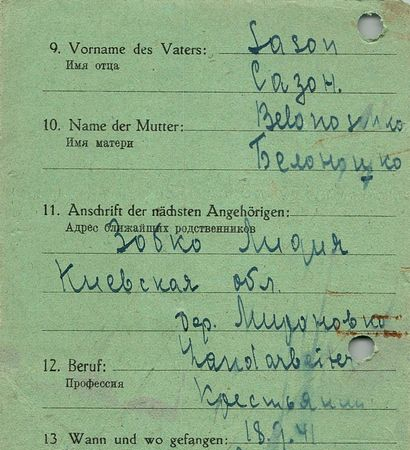 9. Vorname des Vaters: Sason
Имя отца
Сазон.
Belonoschko
10. Name der Mutter:
Имя матери
Белоношко
11. Anschrift der nächsten Angehörigen:
Адрес ближайших родственников
Зовко Лидия
Киевская обл.
дер. Мироновко
12. Beruf: Landarbeiter
Профессия
Крестьянин
13 Wann und wo gefangen: 18.9.41